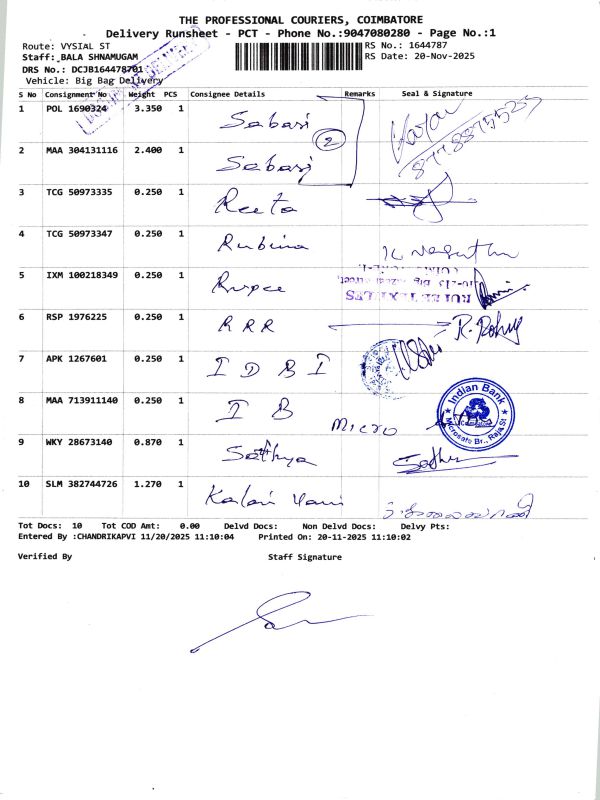 THE PROFESSIONAL COURIERS, COIMBATORE
Delivery Runsheet - PCT - Phone No.:9047080280 - Page No.:1
Route: VYSIAL ST RS No.: 1644787
Staff: BALA SHNAMUGAM RS Date: 20-Nov-2025
DRS No.: DCJB164478701
Vehicle: Big Bag Delivery
S No Consignment No Weight PCS Consignee Details Remarks Seal & Signature
1 POL 1690324 3.350 1 Sabari
2
2 MAA 304131116 2.400 1 Sabari
3 TCG 50973335 0.250 1 Reeta
4 TCG 50973347 0.250 1 Rubina
5 IXM 100218349 0.250 1 Rupee
6 RSP 1976225 0.250 1 RRR
7 APK 1267601 0.250 1 IDBI
8 MAA 713911140 0.250 1 IB Micro
Indian Bank
Microsate Br., Raja St
9 WKY 28673140 0.870 1 Sathya
10 SLM 382744726 1.270 1 Kalai Vani
Tot Docs: 10 Tot COD Amt: 0.00 Delvd Docs: Non Delvd Docs: Delvy Pts:
Entered By :CHANDRIKAPVI 11/20/2025 11:10:04 Printed On: 20-11-2025 11:10:02
Verified By Staff Signature